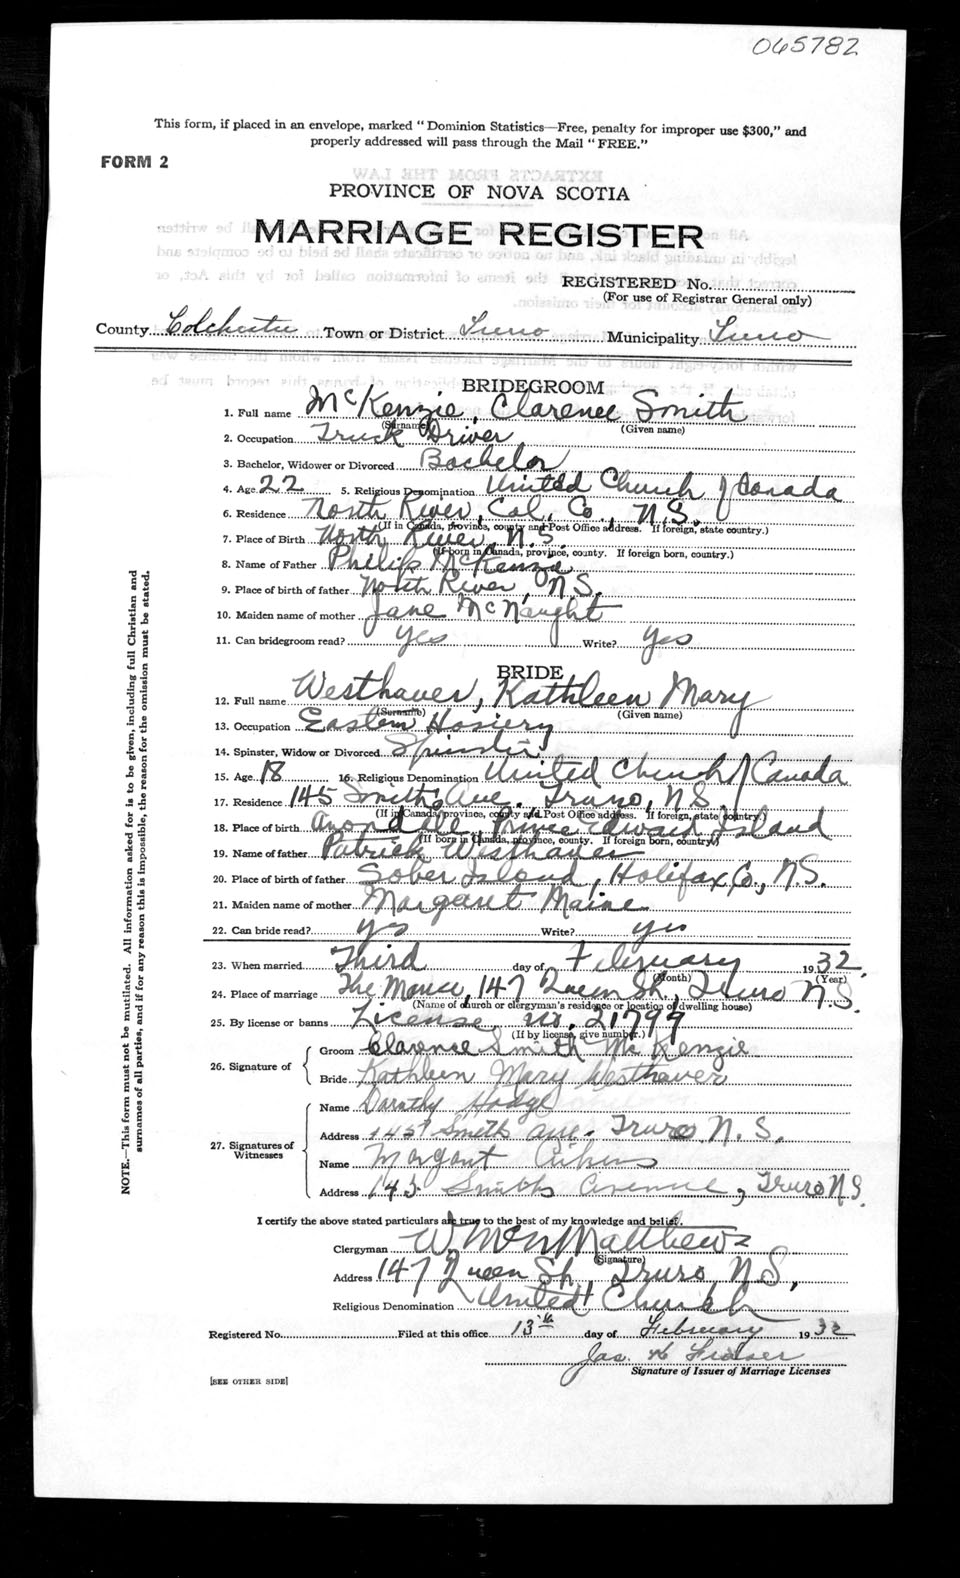 065782
This form, if placed in an envelope, marked "Dominion Statistics—Free, penalty for improper use $300," and
properly addressed will pass through the Mail "FREE."
FORM 2
PROVINCE OF NOVA SCOTIA
MARRIAGE REGISTER
REGISTERED No.
(For use of Registrar General only)
County Colchester Town or District Truro Municipality Truro
BRIDEGROOM
1. Full name McKenzie, Clarence Smith
(Surname) (Given name)
2. Occupation Truck Driver
3. Bachelor, Widower or Divorced Bachelor
4. Age 22 5. Religious Denomination United Church of Canada
6. Residence North River, Col. Co., N.S.
(If in Canada, province, county and Post Office address. If foreign, state country.)
7. Place of Birth North River, N.S.
(If born in Canada, province, county. If foreign born, country.)
8. Name of Father Philip McKenzie
9. Place of birth of father North River, N.S.
10. Maiden name of mother Jane McNaught
11. Can bridegroom read? Yes Write? Yes
BRIDE
12. Full name Westhaver, Kathleen Mary
(Surname) (Given name)
13. Occupation Eastern Hosiery
14. Spinster, Widow or Divorced Spinster
15. Age 18 16. Religious Denomination United Church of Canada
17. Residence 145 Smith's Ave. Truro, N.S.
(If in Canada, province, county and Post Office address. If foreign, state country.)
18. Place of birth Prince Edward Island
(If born in Canada, province, county. If foreign born, country.)
19. Name of father Patrick Westhaver
20. Place of birth of father Sober Island, Halifax Co., N.S.
21. Maiden name of mother Margaret Maine
22. Can bride read? yes Write? yes
23. When married Third day of February 1932.
(Month) (Year)
24. Place of marriage The Manse, 147 Queen St., Truro N.S.
(Name of church or clergyman's residence or location of dwelling house)
25. By license or banns License no. 21799
(If by license, give number.)
26. Signature of
Groom Clarence Smith McKenzie
Bride Kathleen Mary Westhaver
27. Signatures of Witnesses
Name Dorothy Hodge
Address 145 Smith Ave. Truro N.S.
Name Margaret Aikens
Address 145 Smiths Avenue, Truro N.S.
I certify the above stated particulars are true to the best of my knowledge and belief.
Clergyman Matthews
(Signature)
Address 147 Queen St., Truro, N.S.,
Religious Denomination United Church
Registered No. Filed at this office 13th day of February 1932
Jas. H Fraser
Signature of Issuer of Marriage Licenses
[SEE OTHER SIDE]
NOTE.—This form must not be mutilated. All information asked for is to be given, including full Christian and
surnames of all parties, and if for any reason this is impossible, the reason for the omission must be stated.